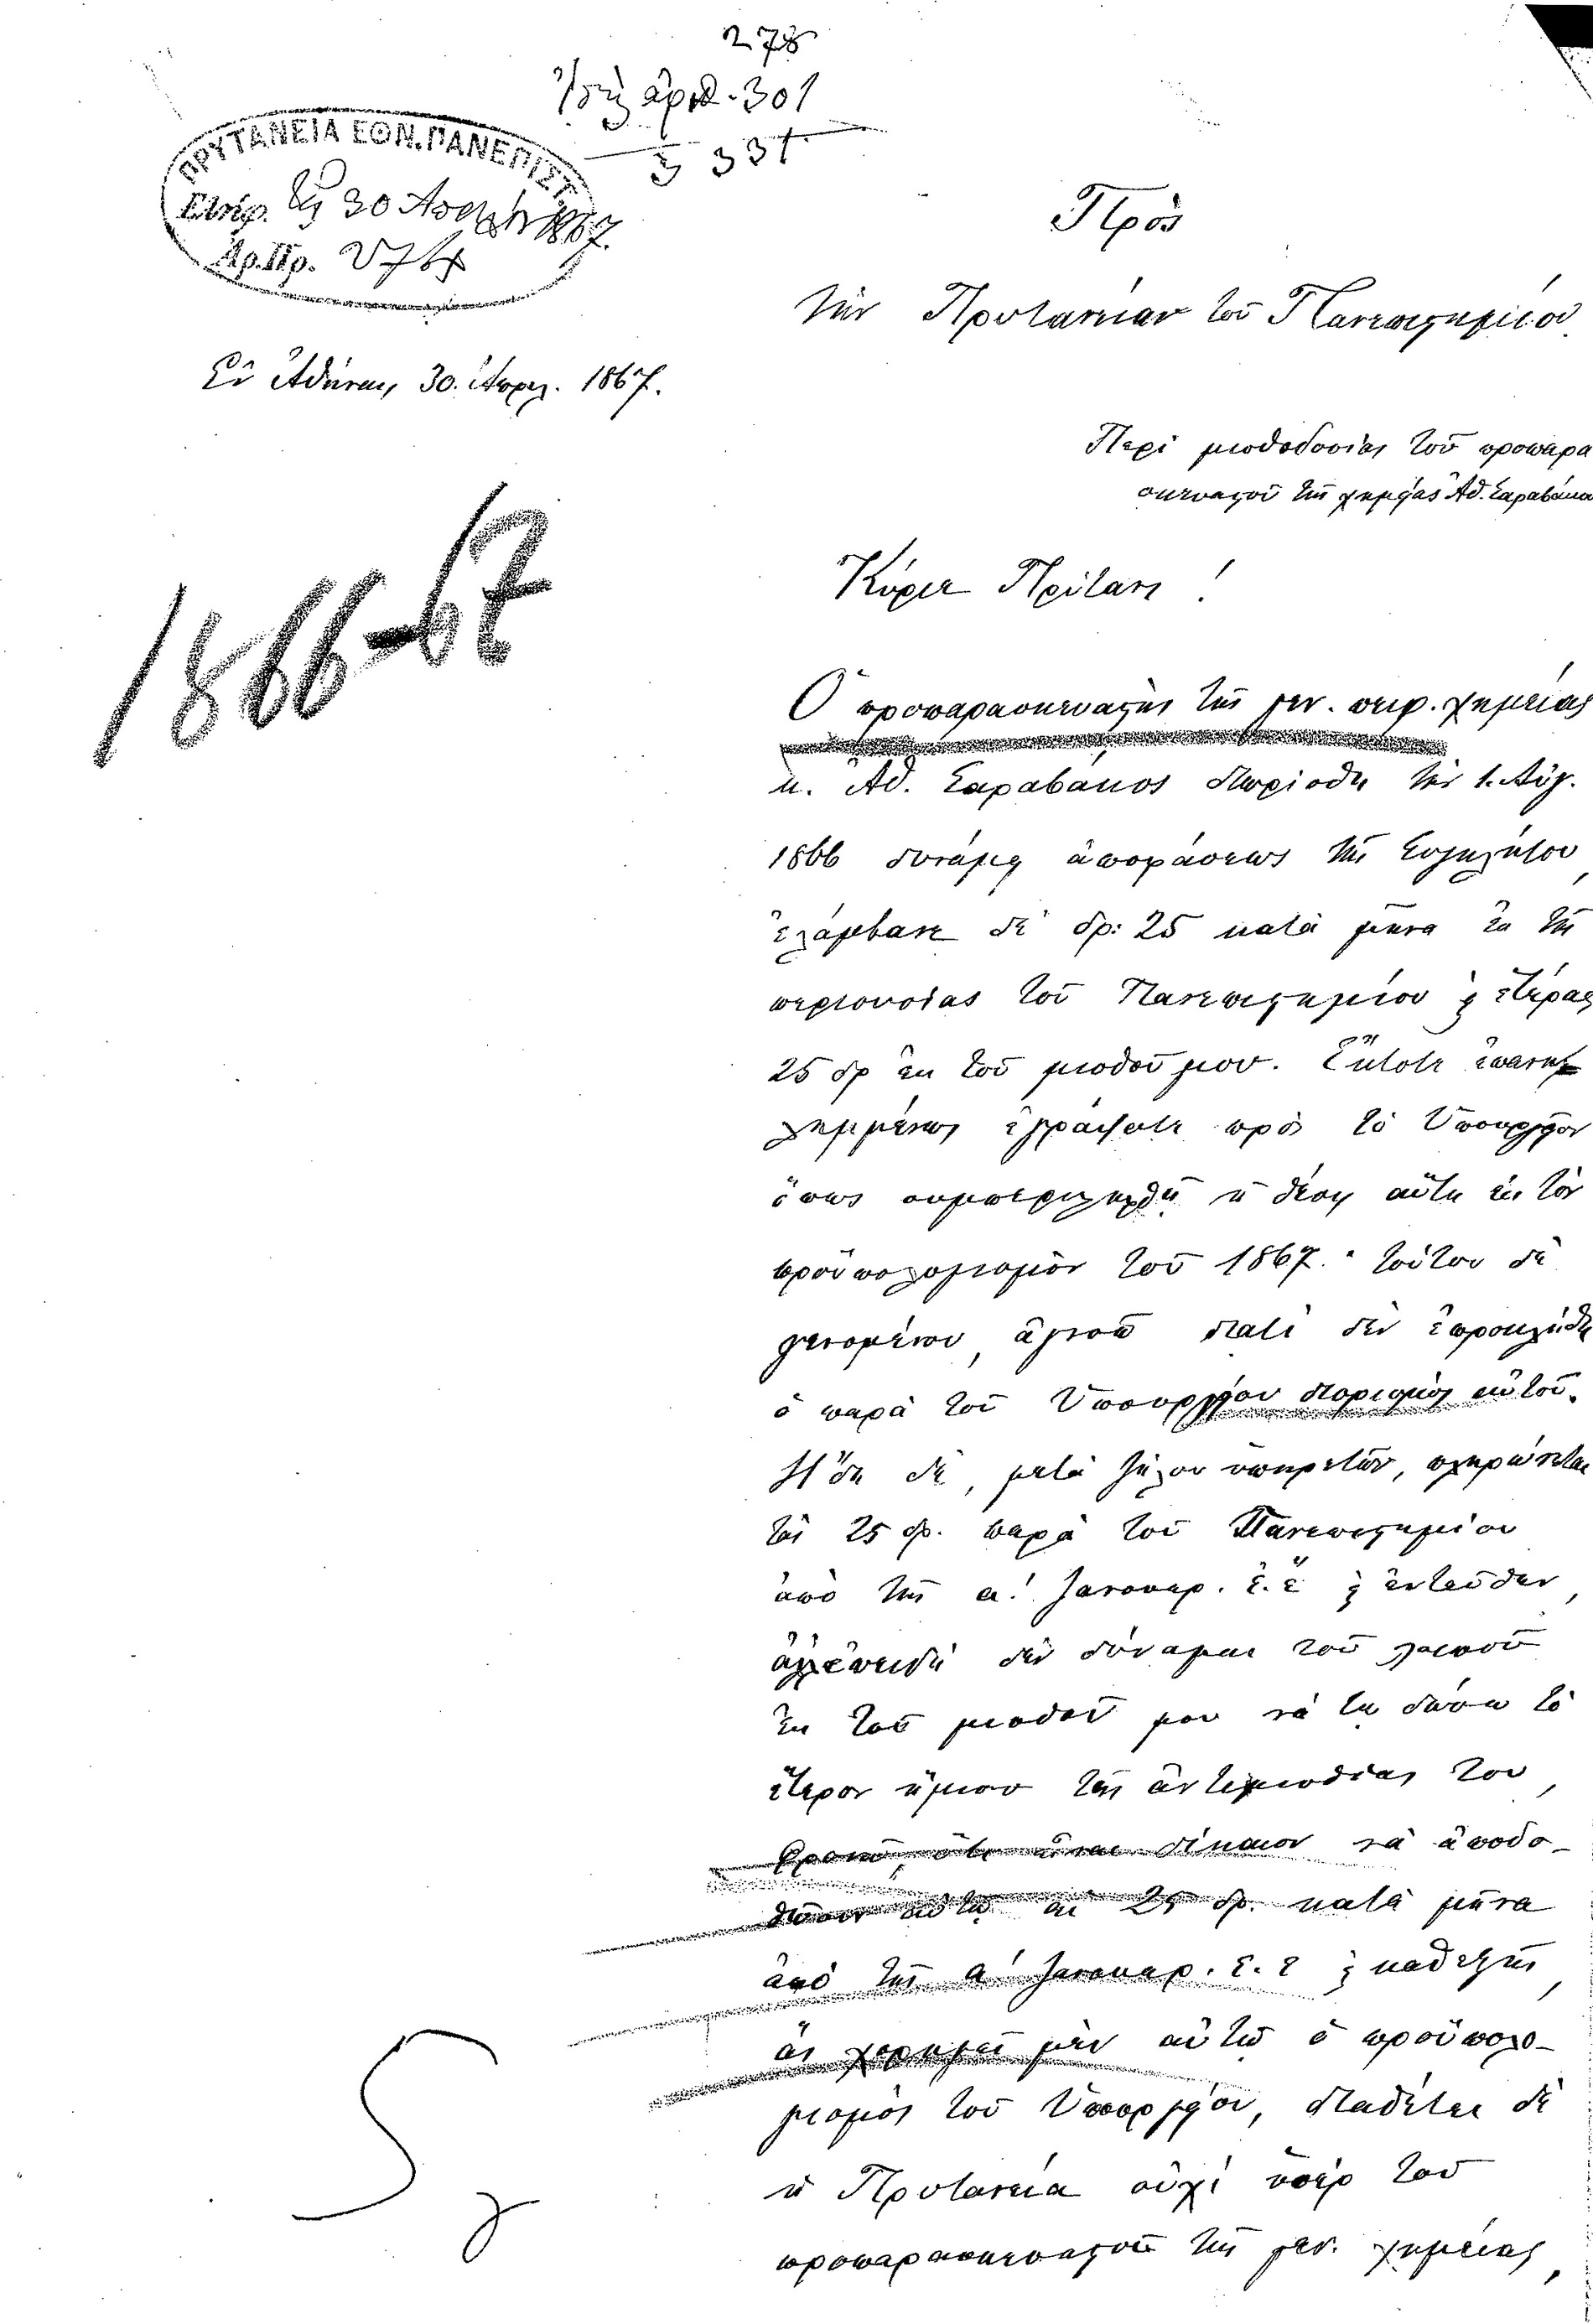 278
ἀριθ. 301
3 331
ΠΡΥΤΑΝΕΙΑ ΕΘΝ. ΠΑΝΕΠΙΣΤ.
Ελήφ. τῇ 30 Ἀπριλ 1867.
Ἀρ. Πρ.
Ἐν Ἀθήναις, 30. Ἀπριλ. 1867.
Πρὸς
τὴν Πρυτανείαν τοῦ Πανεπιστημίου
Περὶ μισθοδοσίας τοῦ προπαρα
σκευαστοῦ τῆς χημείας Ἀθ. Σαραβάκου
1866-67
Κύριε Πρύτανι!
Ὁ προπαρασκευαστὴς τῆς γεν. πειρ. χημείας
κ. Ἀθ. Σαραβάκος διωρίσθη τὴν 1. Αὐγ.
1866 δυνάμει ἀποφάσεως τῆς Συγκλήτου,
ἐλάμβανε δὲ δρ: 25 κατὰ μῆνα ἐκ τῆς
περιουσίας τοῦ Πανεπιστημίου ϗ ἑτέρας
25 δρ ἐκ τοῦ μισθοῦ μου. Ἔκτοτε ἐπανει
λημμένως ἐγράψατε πρὸς τὸ Ὑπουργεῖον
ὅπως συμπεριληφθῇ ἡ θέσις αὕτη εἰς τὸν
προϋπολογισμὸν τοῦ 1867. · τούτου δὲ
γενομένου, ἀγνοῶ διατὶ δὲν ἐπροσκλήθη
ὁ παρὰ τοῦ Ὑπουργείου διορισμὸς αὐτοῦ.
Ἤδη δὲ, μετὰ ζήλου ὑπηρετῶν, πληρώνεται
τὰς 25 δρ. παρὰ τοῦ Πανεπιστημίου
ἀπὸ τῆς α! Ἰανουαρ. ἐ. ἔ ϗ ἐντεῦθεν,
ἀλλ' ἐπειδὴ δὲν δύναμαι τοῦ λοιποῦ
ἐκ τοῦ μισθοῦ μου νὰ τῷ δώσω τὸ
ἕτερον ἥμισυ τῆς ἀντιμισθίας του,
φρονῶ, ὅτι εἶναι δίκαιον νὰ ἀποδο-
θῶσιν αὐτῷ αἱ 25 δρ. κατὰ μῆνα
ἀπὸ τῆς α! Ἰανουαρ. ἐ. ἔ ϗ καθεξῆς,
ἃς χορηγεῖ μὲν αὐτῷ ὁ προϋπολο-
γισμὸς τοῦ Ὑπουργείου, διαθέτει δὲ
ἡ Πρυτανεία οὐχὶ ὑπὲρ τοῦ
προπαρασκευαστοῦ τῆς γεν. χημείας,